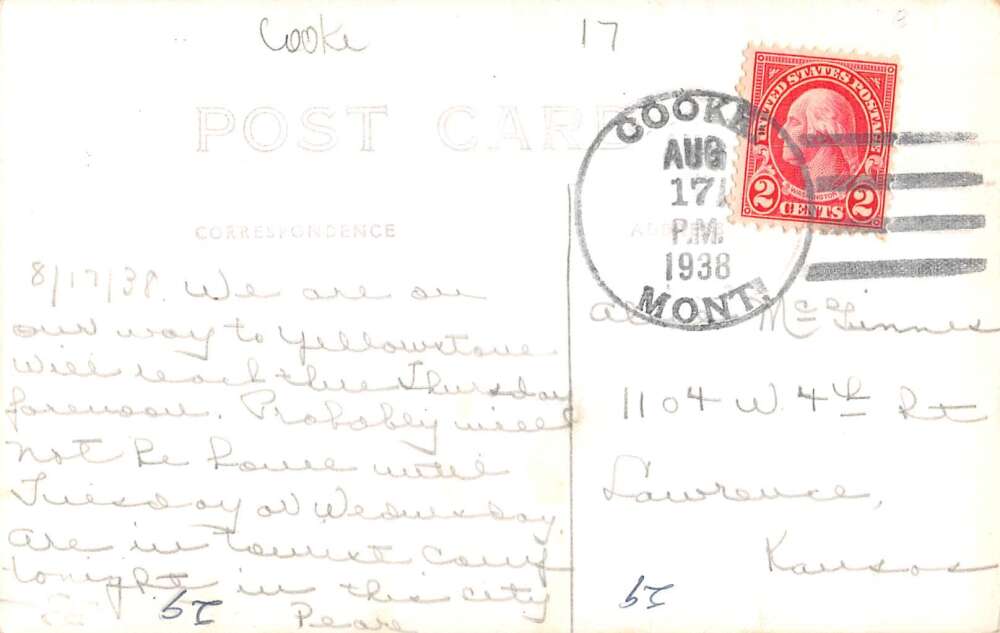 Cooke
17
POST CARD
UNITED STATES POSTAGE
WASHINGTON
2 CENTS 2
COOKE
AUG
17
P.M.
1938
MONT.
CORRESPONDENCE
ADDRESS
8/17/38. We are on
our way to Yellowstone
will reach there Thursday
forenoon. Probably will
not be home until
Tuesday or Wednesday.
Are in tourist camp
tonight in this city
Pearl
McGinnis
1104 W. 4th St
Lawrence,
Kansas